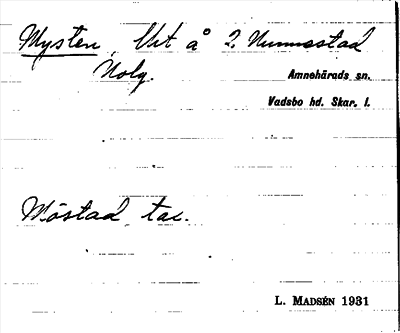 Mysten, Utt å 2. Nunnestad
Nolg.
Amnehärads sn.
Vadsbo hd. Skar. l.
Måstad, tax.
L. MADSÉN 1931